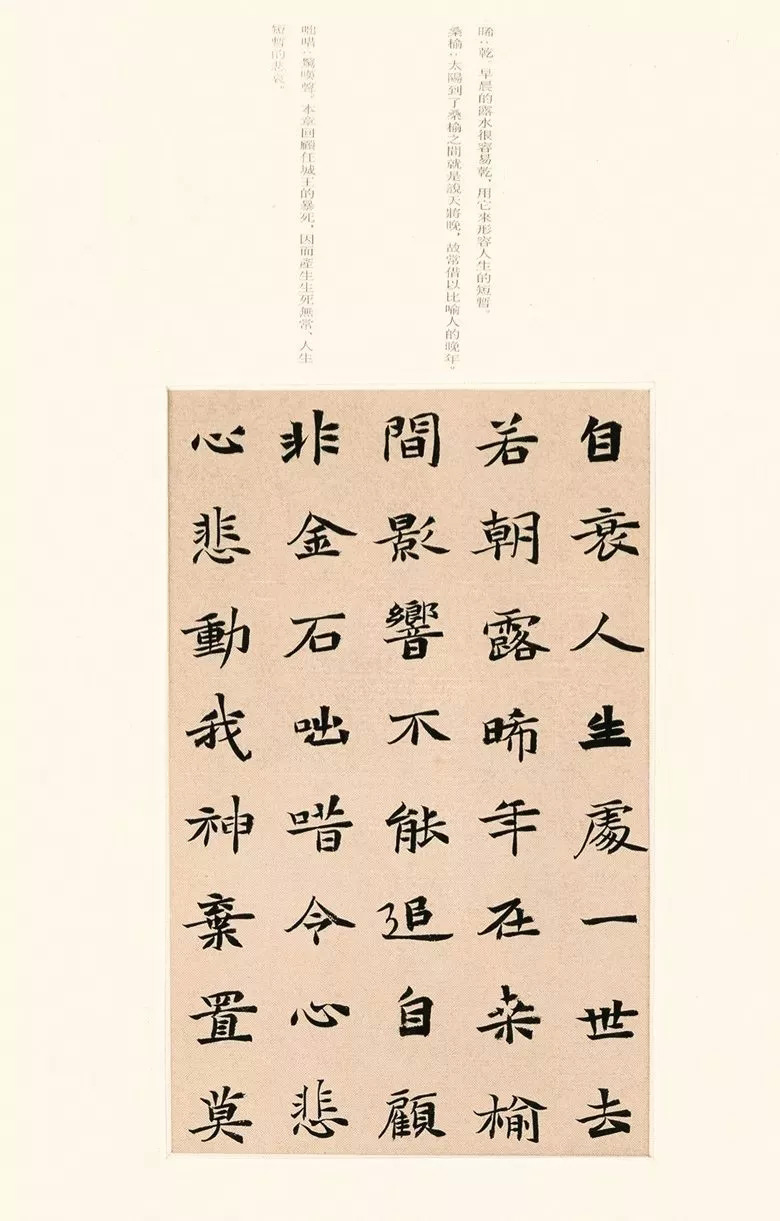 晞：乾。早晨的露水很容易乾，用它來形容人生的短暫。
桑榆：太陽到了桑榆之間就是說天將晚，故常借以比喻人的晚年。
咄唶：驚嘆聲。本章回顧任城王的暴死，因而産生生死無常、人生
短暫的悲哀。
自衰人生處一世去
若朝露晞年在桒榆
間影響不能追自顧
非金石咄唶令心悲
心悲動我神棄置莫